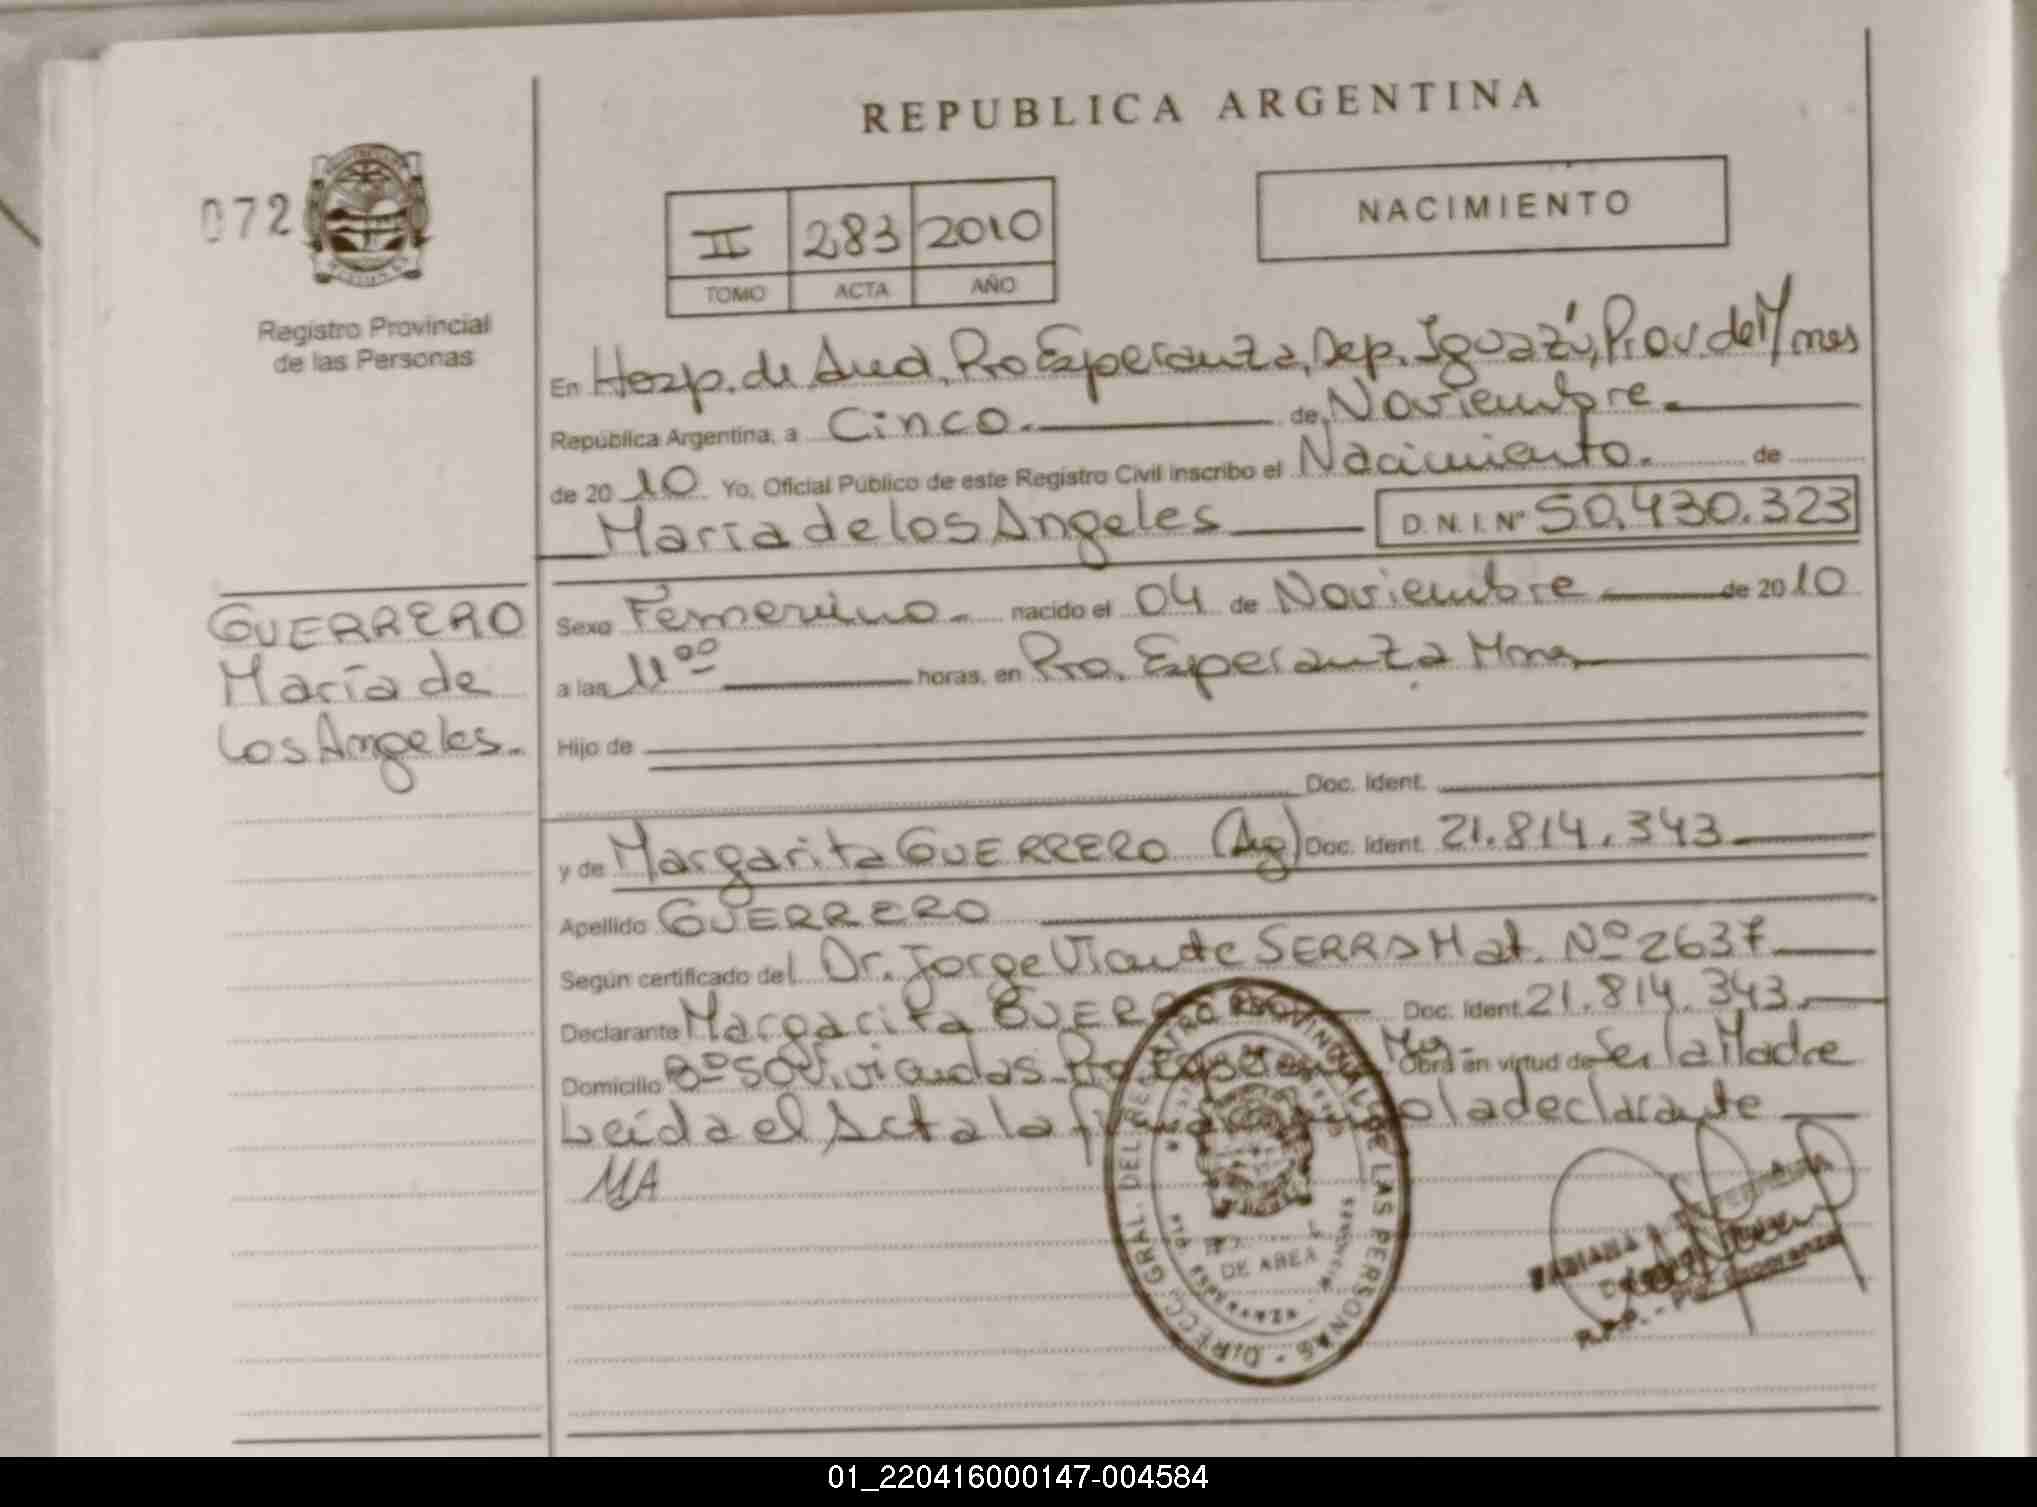 REPUBLICA ARGENTINA
072
Registro Provincial
de las Personas
II 283 2010
TOMO ACTA AÑO
NACIMIENTO
En Hosp. de Area, Pto Esperanza, Dep. Iguazú, Prov. de Mnes
República Argentina, a Cinco. de Noviembre.
de 2010 Yo, Oficial Público de este Registro Civil inscribo el Nacimiento. de
María de los Angeles D.N.I. Nº 50.430.323
GUERRERO
María de
los Angeles.
Sexo Femenino. nacido el 04 de Noviembre de 2010
a las 11⁰⁰ horas, en Pto. Esperanza Mnes
Hijo de
Doc. Ident.
y de Margarita GUERRERO (Ag) Doc. Ident. 21.814.343
Apellido GUERRERO
Según certificado del Dr. Jorge Vicente SERRA Mat. Nº 2637
Declarante Margarita GUERRERO Doc. Ident. 21.814.343.
Domicilio Bº 50 Viviendas Pto Esperanza Obra en virtud de Ser la Madre
Leída el Acta la firma la declarante
MA
DIRECC. GRAL. DEL REGISTRO PROVINCIAL DE LAS PERSONAS
DE AREA
FABIANA
R.P.P. - Pto Esperanza
01_220416000147-004584